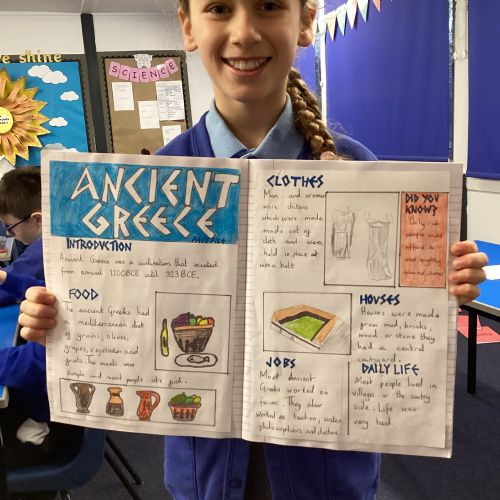 ve shine
SCIENCE
ANCIENT
GREECE
FACTFILE
INTRODUCTION
Ancient Greece was a civilisation that occured
from around 1200BCE until 323BCE.
FOOD
The ancient Greeks had
a mediterranean diet
of grains, olives,
grapes, vegetables and
fruits. The meals were
simple and most people ate
CLOTHES
Men and women
wore chitons
which were made
made out of
cloth and were
held in place at
with a belt
DID YOU
KNOW?
Only rich
people could
afford to
HOUSES
Houses were made
from mud, bricks,
wood or stone they
had a central
courtyard.
JOBS
Most Ancient
Greeks worked on
farms. They also
worked as teachers,
philosophers and doctors.
DAILY LIFE
Most people lived in
villages or the country
side. Life was
very hard